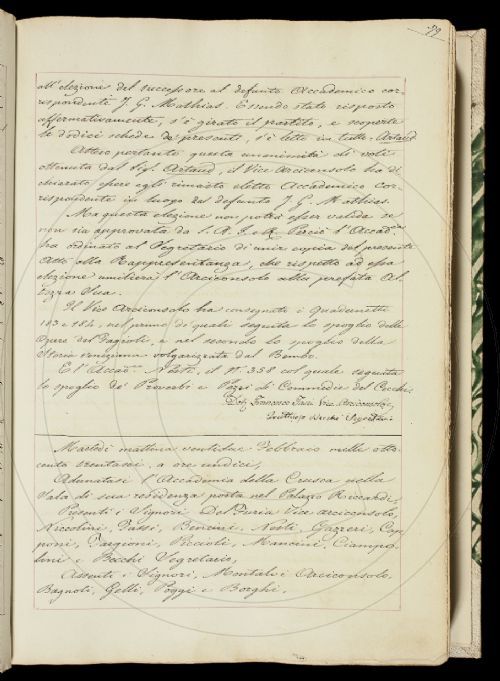 79
all'elezione del successore al defunto Accademico cor-
rispondente J. G. Mathias. Essendo stato risposto
affermativamente, s'è girato il partito, e scoperte
le dodici schede de' presenti, s'è letto in tutte = Artaud
Atteso pertanto questa unanimità di voti
ottenuta dal Sig. Artaud, il Vice Arciconsolo ha di-
chiarato essere egli rimasto eletto Accademico Cor-
rispondente in luogo del defunto J. G. Mathias.
Ma questa elezione non potrà esser valida se
non sia approvata da S. A. I. e R. Perciò l'Accad.
ha ordinato al Segretario di unir copia del presente
Atto alla Rappresentanza, che rispetto ad essa
elezione umilierà l'Arciconsolo alla prefata Al-
tezza Sua.
Il Vice Arciconsolo ha consegnati i Quadernetti
183 e 184, nel primo de' quali seguita lo spoglio delle
Opere del Fagioli, e nel secondo lo spoglio della
Storia veneziana volgarizzata dal Bembo.
E l'Accad. Nesti, il N.° 358 col quale seguita
lo spoglio de' Proverbi e Pezzi di Commedie del Cecchi.
Del Furia Vice Arciconsolo
Segretario
Martedì mattina ventidue Febbraio mille otto-
cento trentasei, a ore undici,
Adunatasi l'Accademia della Crusca nella
Sala di sua residenza posta nel Palazzo Riccardi,
Presenti i Signori Del Furia Vice Arciconsolo,
Niccolini, Tassi, Bencini, Nesti, Gazzeri, Cap-
poni, Targioni, Piccioli, Mancini, Ciampo-
lini e Becchi Segretario,
Assenti i Signori, Montalvi Arciconsolo,
Bagnoli, Gelli, Poggi e Borghi.